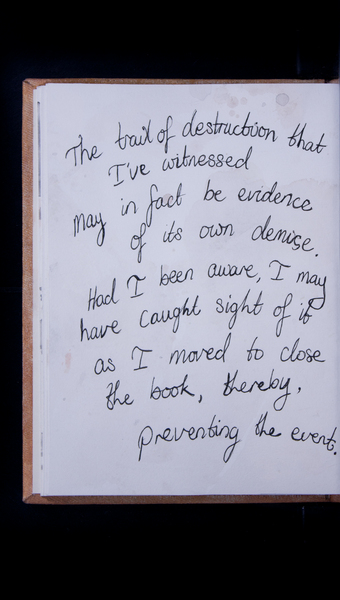 The trail of destruction that
I've witnessed
may in fact be evidence
of its own demise.
Had I been aware, I may
have caught sight of it
as I moved to close
the book, thereby,
preventing the event.